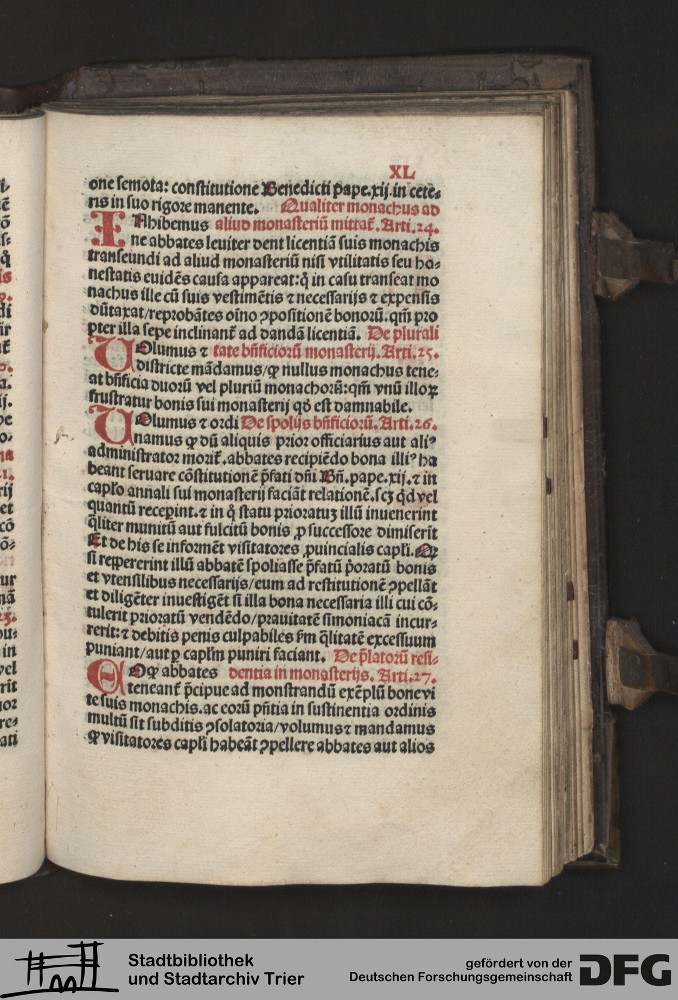 XL
one semota: constitutione Benedicti p̄ape.xij.in cete⸗
ris in suo rigore manente. Qualiter monachus ad
INhibemus aliud monasteriū mittat᷑. Arti.24.
ne abbates leuiter dent licentiā suis monachis
transeundi ad aliud monasteriū nisi vtilitatis seu ho⸗
nestatis euidēs causa appareat: q̇ in casu transeat mo
nachus ille cū suis vestimētis ⁊ necessarijs ⁊ expensis
dūtaxat/reprobātes oīno ꝯpositionē bonorū. qm̄ pro
pter illa sepe inclinant᷑ ad dandā licentiā. De plurali
VOlumus ⁊ tate bn̄ficiorū monasterij. Arti.25.
districte mādamus/ꝙ nullus monachus tene⸗
at bn̄ficia duorū vel pluriū monachorū: qm̄ vnū illoꝝ
frustratur bonis sui monasterij qd̓ est damnabile.
VOlumus ⁊ ordi De spolijs bn̄ficiorū. Arti.26.
namus ꝙ dū aliquis prior officiarius aut aliꝰ
administrator morit᷑. abbates recipiēdo bona illiꝰ ha
beant seruare cōstitutionē p̄fati dn̄i Bn̄. pape.xij.⁊ in
capło annali sui monasterij faciāt relationē. scꝫ qd̓ vel
quantū recepint.⁊ in q̇ statu prioratuꝫ illū inuenerint
q̄liter munitū aut fulcitū bonis ꝓ successore dimiserīt
Et de his se informēt visitatores ꝓuincialis capłi. Qꝫ
si reppererint illū abbatē spoliasse p̄fatū p̄oratū bonis
et vtensilibus necessarijs/eum ad restitutionē ꝯpellāt
et diligēter inuestigēt si illa bona necessaria illi cui cō⸗
tulerit prioratū vendēdo/prauitatē simoniacā incur⸗
rerit:⁊ debitis penis culpabiles ẜm q̄litatē excessuum
puniant/aut ꝑ capłm puniri faciant. De p̄latorū resi⸗
EOꝙ abbates dentia in monasterijs. Arti.27.
teneant᷑ p̄cipue ad monstrandū exēplū bone vi
te suis monachis. ac eorū pn̄tia in sustinentia ordinis
multū sit subditis ꝯsolatoria/volumus ⁊ mandamus
ꝙ visitatores capłi habeāt ꝯpellere abbates aut alios
Stadtbibliothek
und Stadtarchiv Trier
gefördert von der
Deutschen Forschungsgemeinschaft
DFG